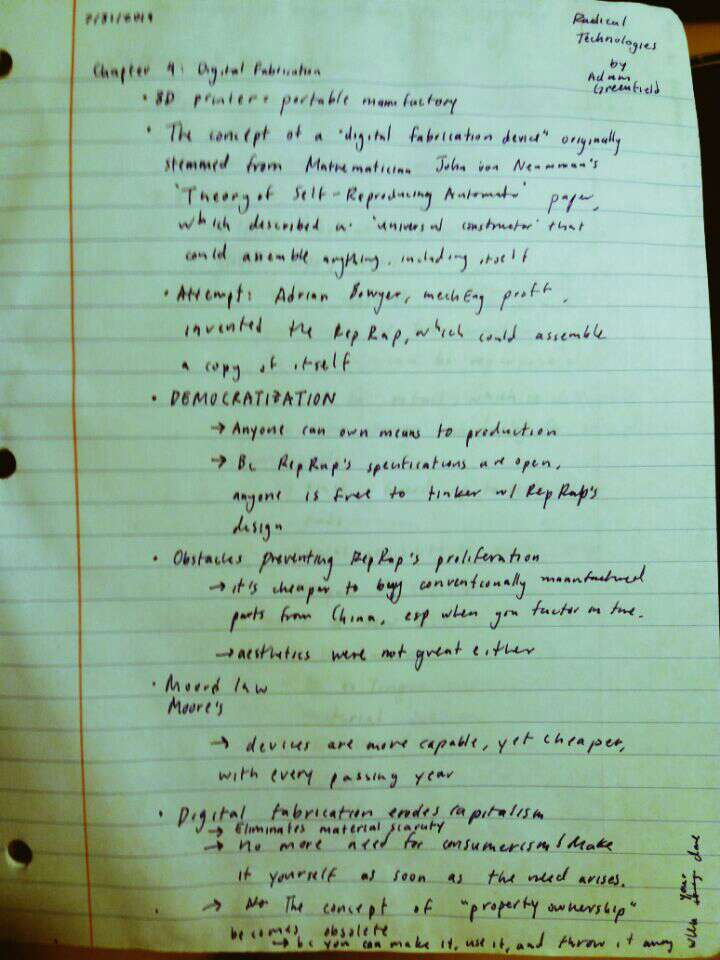 7/31/2019
Radical
Technologies
by
Adam
Greenfield
Chapter 4: Digital Fabrication
• 3D printer = portable manufactory
• The concept of a "digital fabrication device" originally
stemmed from Mathematician John von Neumman's
"Theory of Self-Reproducing Automata" paper,
which described a "universal constructor" that
could assemble anything, including itself
• Attempt: Adrian Bowyer, mechEng proff,
invented the RepRap, which could assemble
a copy of itself
• DEMOCRATIZATION
→ Anyone can own means to production
→ Bc RepRap's specifications are open,
anyone is free to tinker w/ RepRap's
design
• Obstacles preventing RepRap's proliferation
→ it's cheaper to buy conventionally manufactured
parts from China, esp when you factor in time.
→ aesthetics were not great either
• Moore's law
Moore's
→ devices are more capable, yet cheaper,
with every passing year
• Digital fabrication erodes capitalism
→ Eliminates material scarcity
→ No more need for consumerism! Make
it yourself as soon as the need arises.
→ The concept of "property ownership"
becomes obsolete
→ bc you can make it, use it, and throw it away
when your done